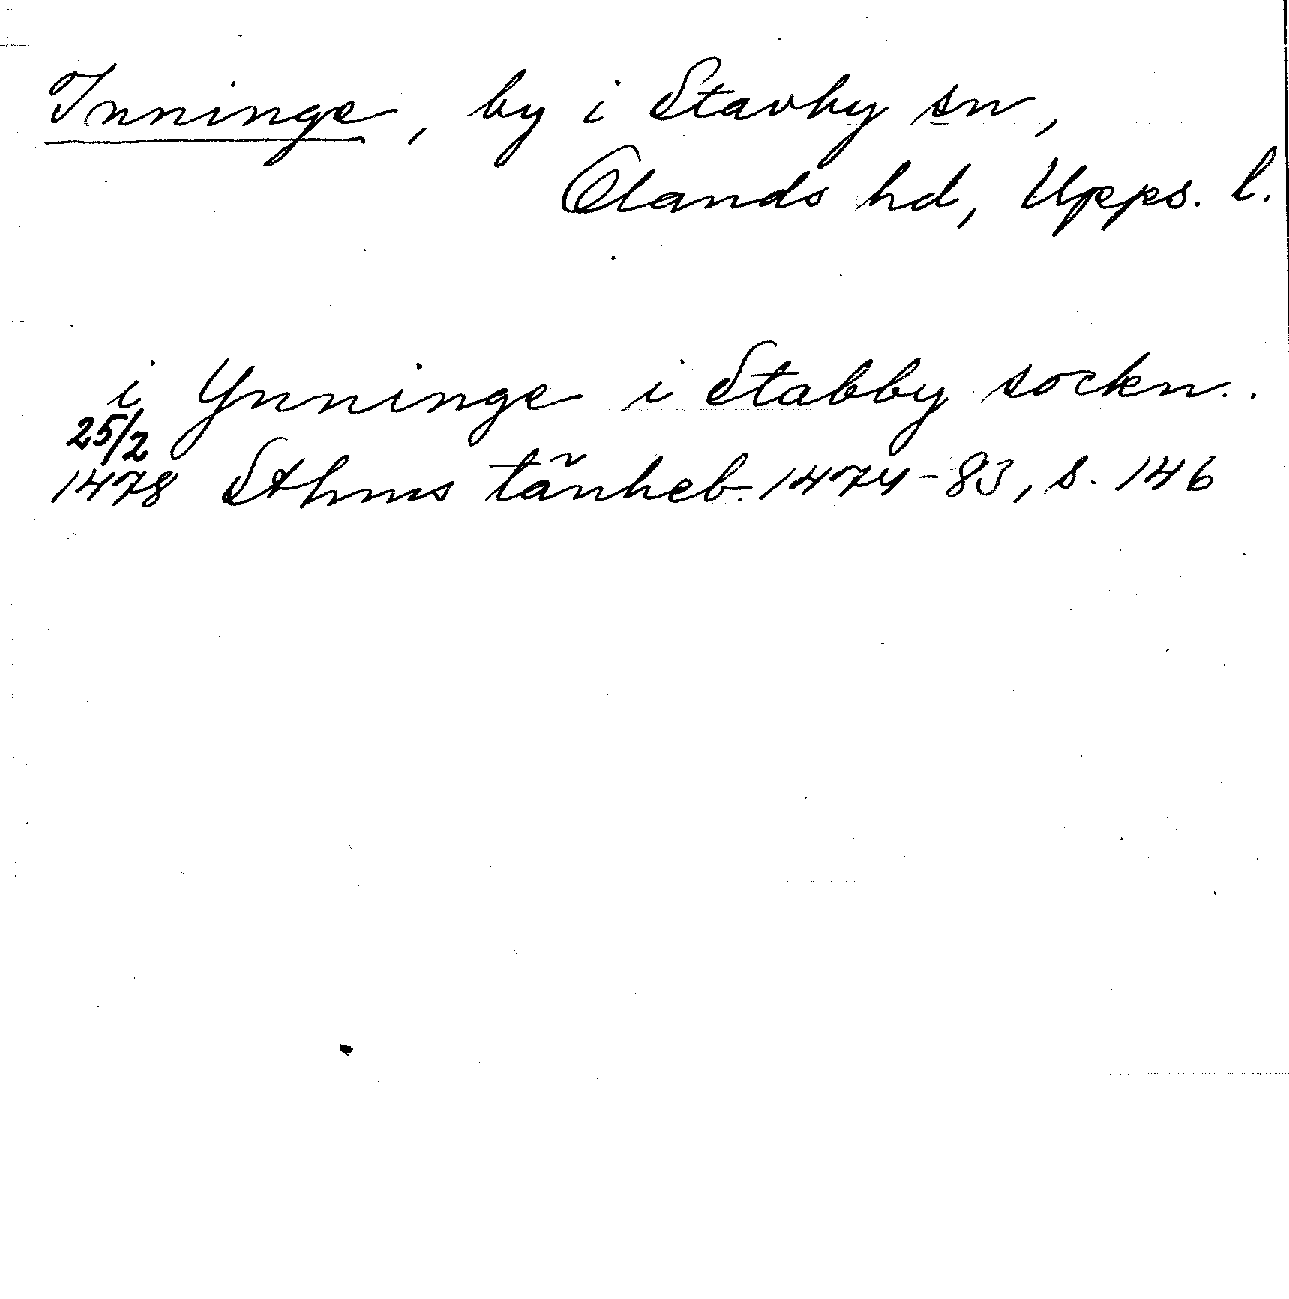 Inninge, by i Stavby sn,
Olands hd, Upps. l.
i Ynninge i Stabby sockn..
25/2
1478 Sthms tänkeb. 1474-83, s. 146